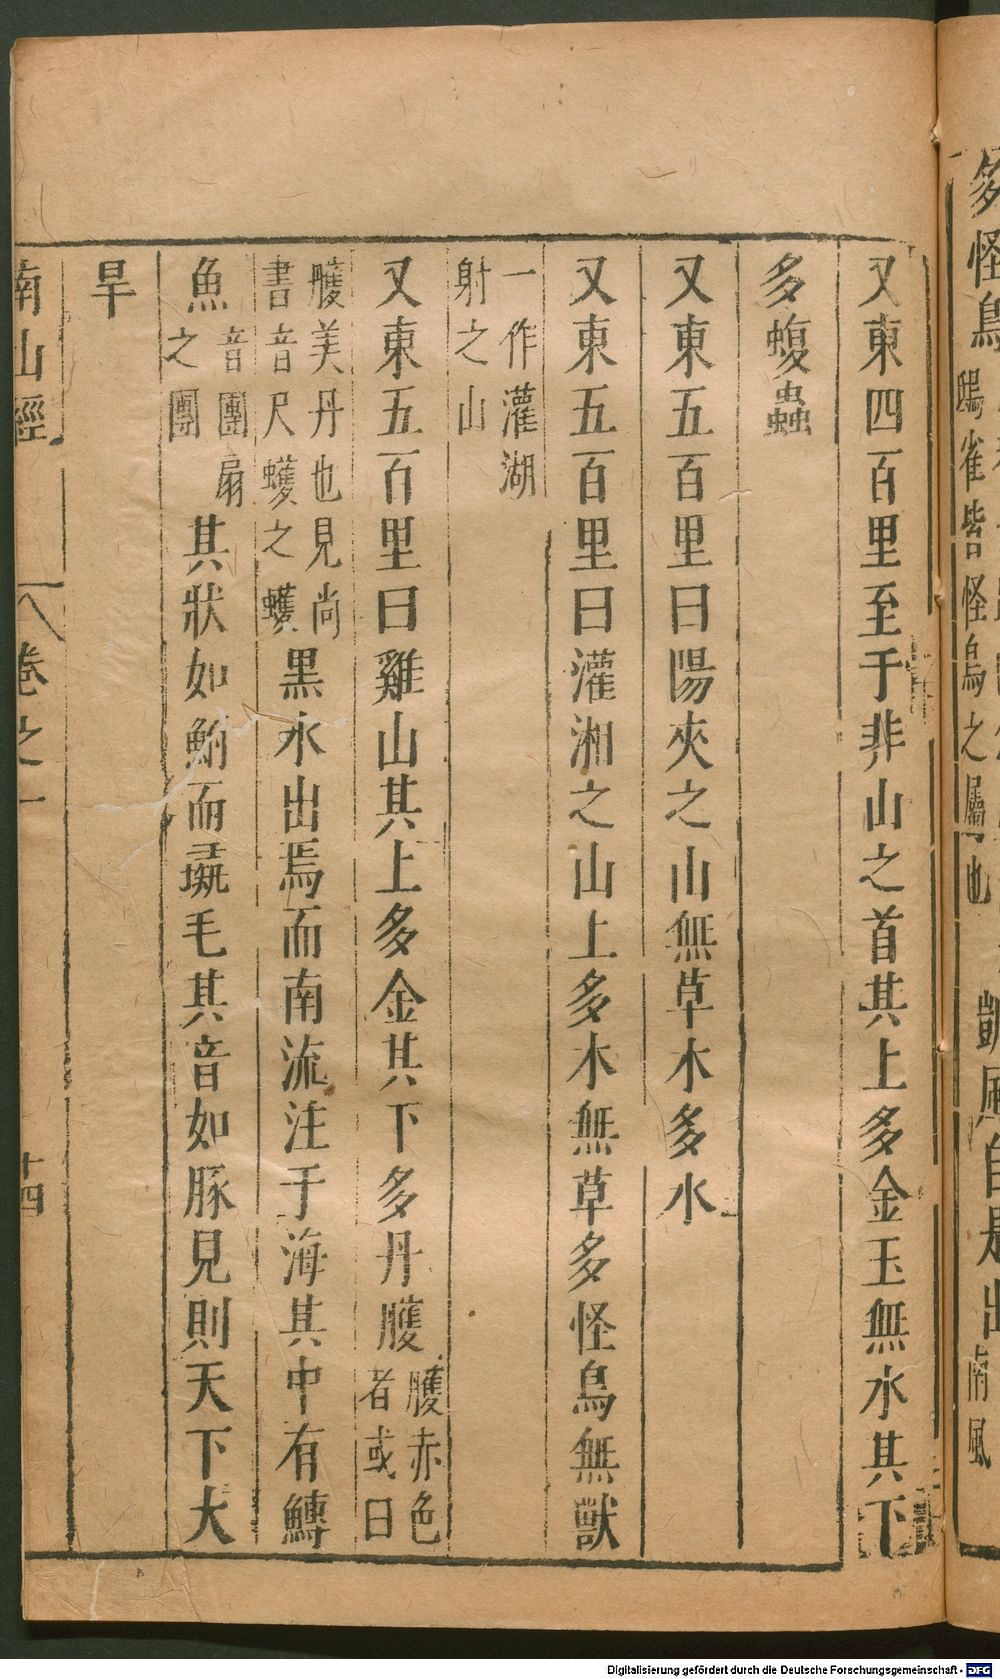 多怪鳥
雀皆怪鳥之屬也
凱風自是出
南風
又東四百里至于非山之首其上多金玉無水其下
多蝮蟲
又東五百里曰陽夾之山無草木多水
又東五百里曰灌湘之山上多木無草多怪鳥無獸
一作灌湖
射之山
又東五百里曰雞山其上多金其下多丹臒
臒赤色
者或曰
臒美丹也見尚
書音尺蠖之蠖
黑水出焉而南流注于海其中有鱄
魚
音團扇
之團
其狀如鮒而彘毛其音如豚見則天下大
旱
南山經
卷之一
十四
Digitalisierung gefördert durch die Deutsche Forschungsgemeinschaft - DFG